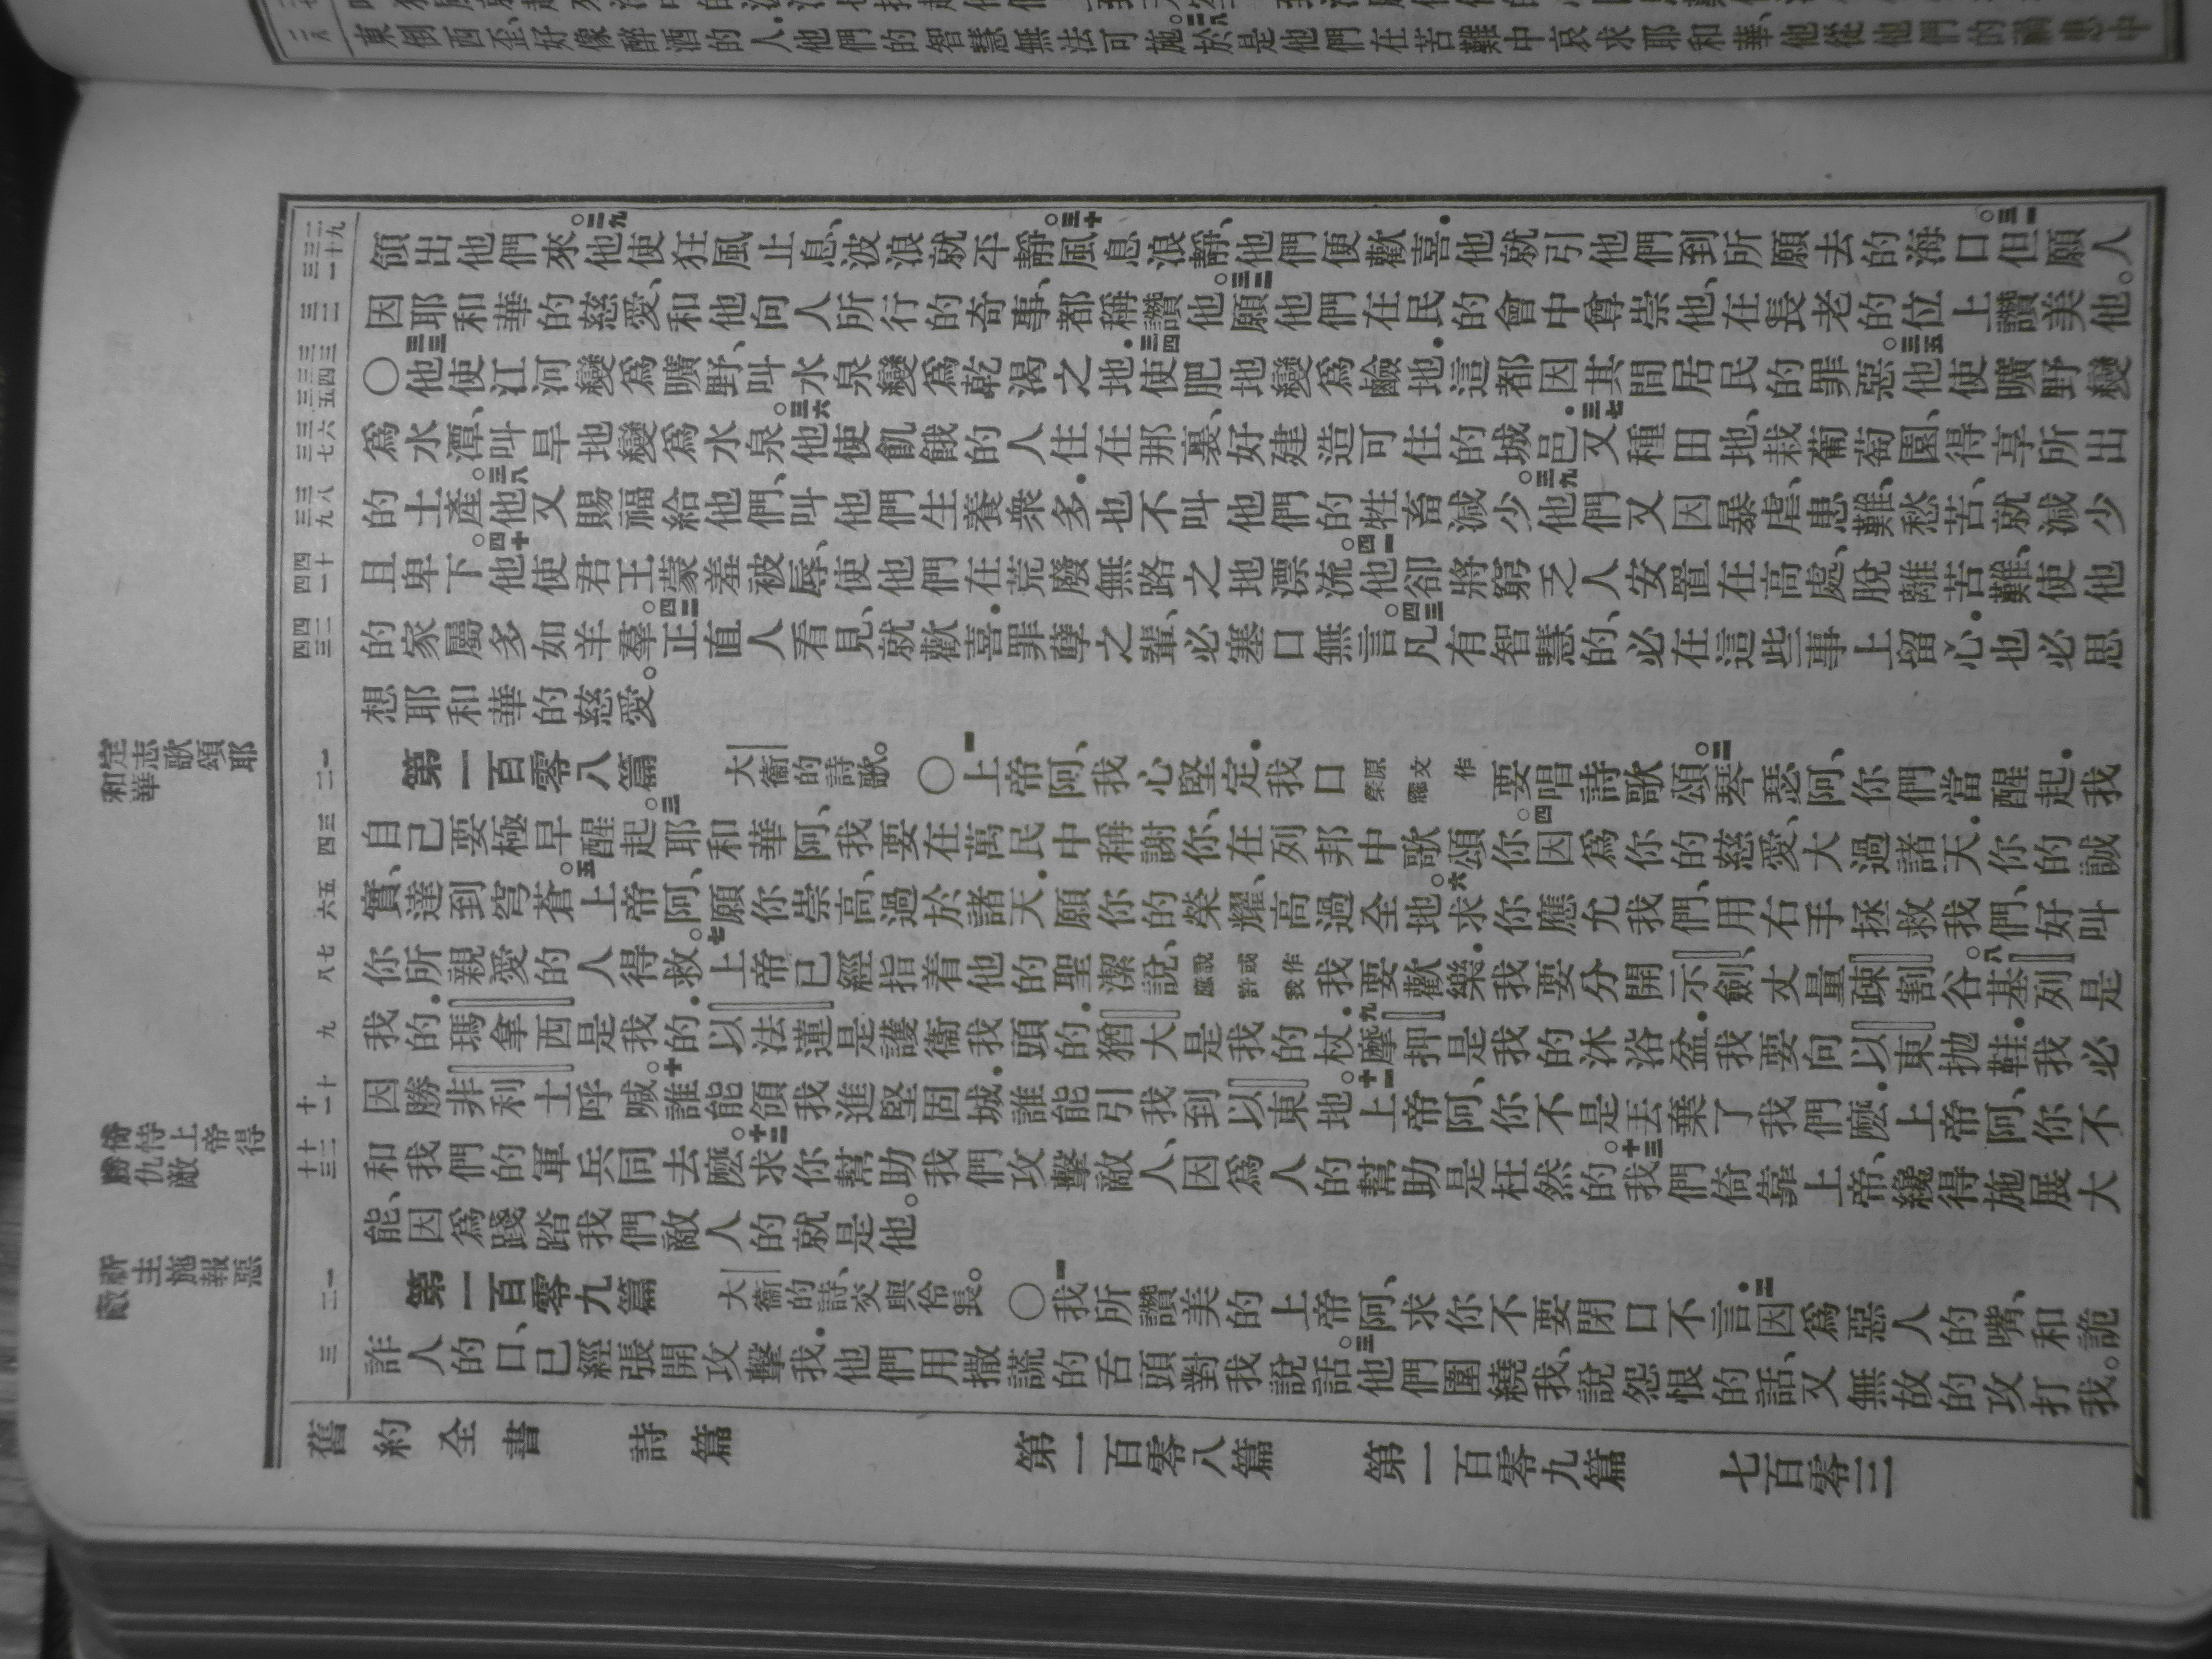 東倒西歪、好像醉酒的人.他們的智慧無法可施。二八於是他們在苦難中哀求耶和華、他從他們的禍患中
領出他們來。二九他使狂風止息、波浪就平靜。三十風息浪靜、他們便歡喜.他就引他們到所願去的海口。三一但願人
因耶和華的慈愛、和他向人所行的奇事、都稱讚他。三二願他們在民的會中尊崇他、在長老的位上讚美他。
〇三三他使江河變爲曠野、叫水泉變爲乾渴之地.三四使肥地變爲鹼地.這都因其間居民的罪惡。三五他使曠野變
爲水潭、叫旱地變爲水泉。三六他使飢餓的人住在那裏、好建造可住的城邑.三七又種田地、栽葡萄園、得享所出
的土產。三八他又賜福給他們、叫他們生養衆多.也不叫他們的牲畜減少。三九他們又因暴虐、患難、愁苦、就減少
且卑下。四十他使君王蒙羞被辱、使他們在荒廢無路之地漂流。四一他卻將窮乏人安置在高處、脫離苦難、使他
的家屬多如羊羣。四二正直人看見、就歡喜.罪孽之輩、必塞口無言。四三凡有智慧的、必在這些事上留心.也必思
想耶和華的慈愛。
第一百零八篇 大衞的詩歌。 〇一上帝阿、我心堅定.我口原文作榮耀要唱詩歌頌。二琴瑟阿、你們當醒起.我
自己要極早醒起。三耶和華阿、我要在萬民中稱謝你、在列邦中歌頌你。四因爲你的慈愛、大過諸天.你的誠
實、達到穹蒼。五上帝阿、願你崇高、過於諸天.願你的榮耀、高過全地。六求你應允我們、用右手拯救我們、好叫
你所親愛的人得救。七上帝已經指着他的聖潔說、說或作應許我我要歡樂.我要分開示劍、丈量疎割谷。八基列是
我的.瑪拿西是我的.以法蓮是護衞我頭的.猶大是我的杖.九摩押是我的沐浴盆.我要向以東拋鞋.我必
因勝非利士呼喊。十誰能領我進堅固城.誰能引我到以東地。十一上帝阿、你不是丟棄了我們麼.上帝阿、你不
和我們的軍兵同去麼。十二求你幫助我們攻擊敵人、因爲人的幫助是枉然的。十三我們倚靠上帝、纔得施展大
能、因爲踐踏我們敵人的就是他。
第一百零九篇 大衞的詩、交與伶長。 〇一我所讚美的上帝阿、求你不要閉口不言.二因爲惡人的嘴、和詭
詐人的口、已經張開攻擊我.他們用撒謊的舌頭對我說話。三他們圍繞我、說怨恨的話、又無故的攻打我。
定志歌頌耶
和華
倚恃上帝得
勝仇敵
祈主施報惡
敵
舊約全書 詩篇 第一百零八篇 第一百零九篇 七百零三